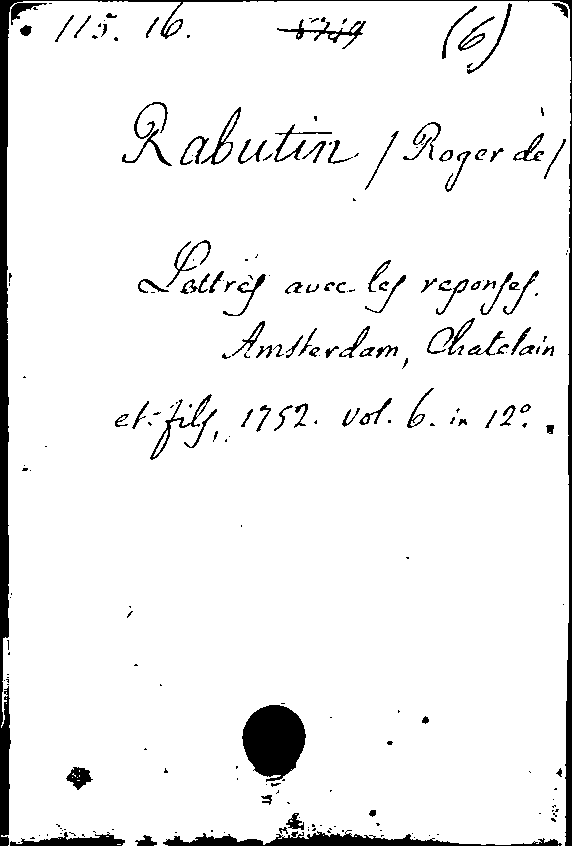 115. 16. 5749 (6)
Rabutin / Roger de /
Lettres avec les reponses.
Amsterdam, Chatelain
et fils, 1752. vol. 6. in 12º.